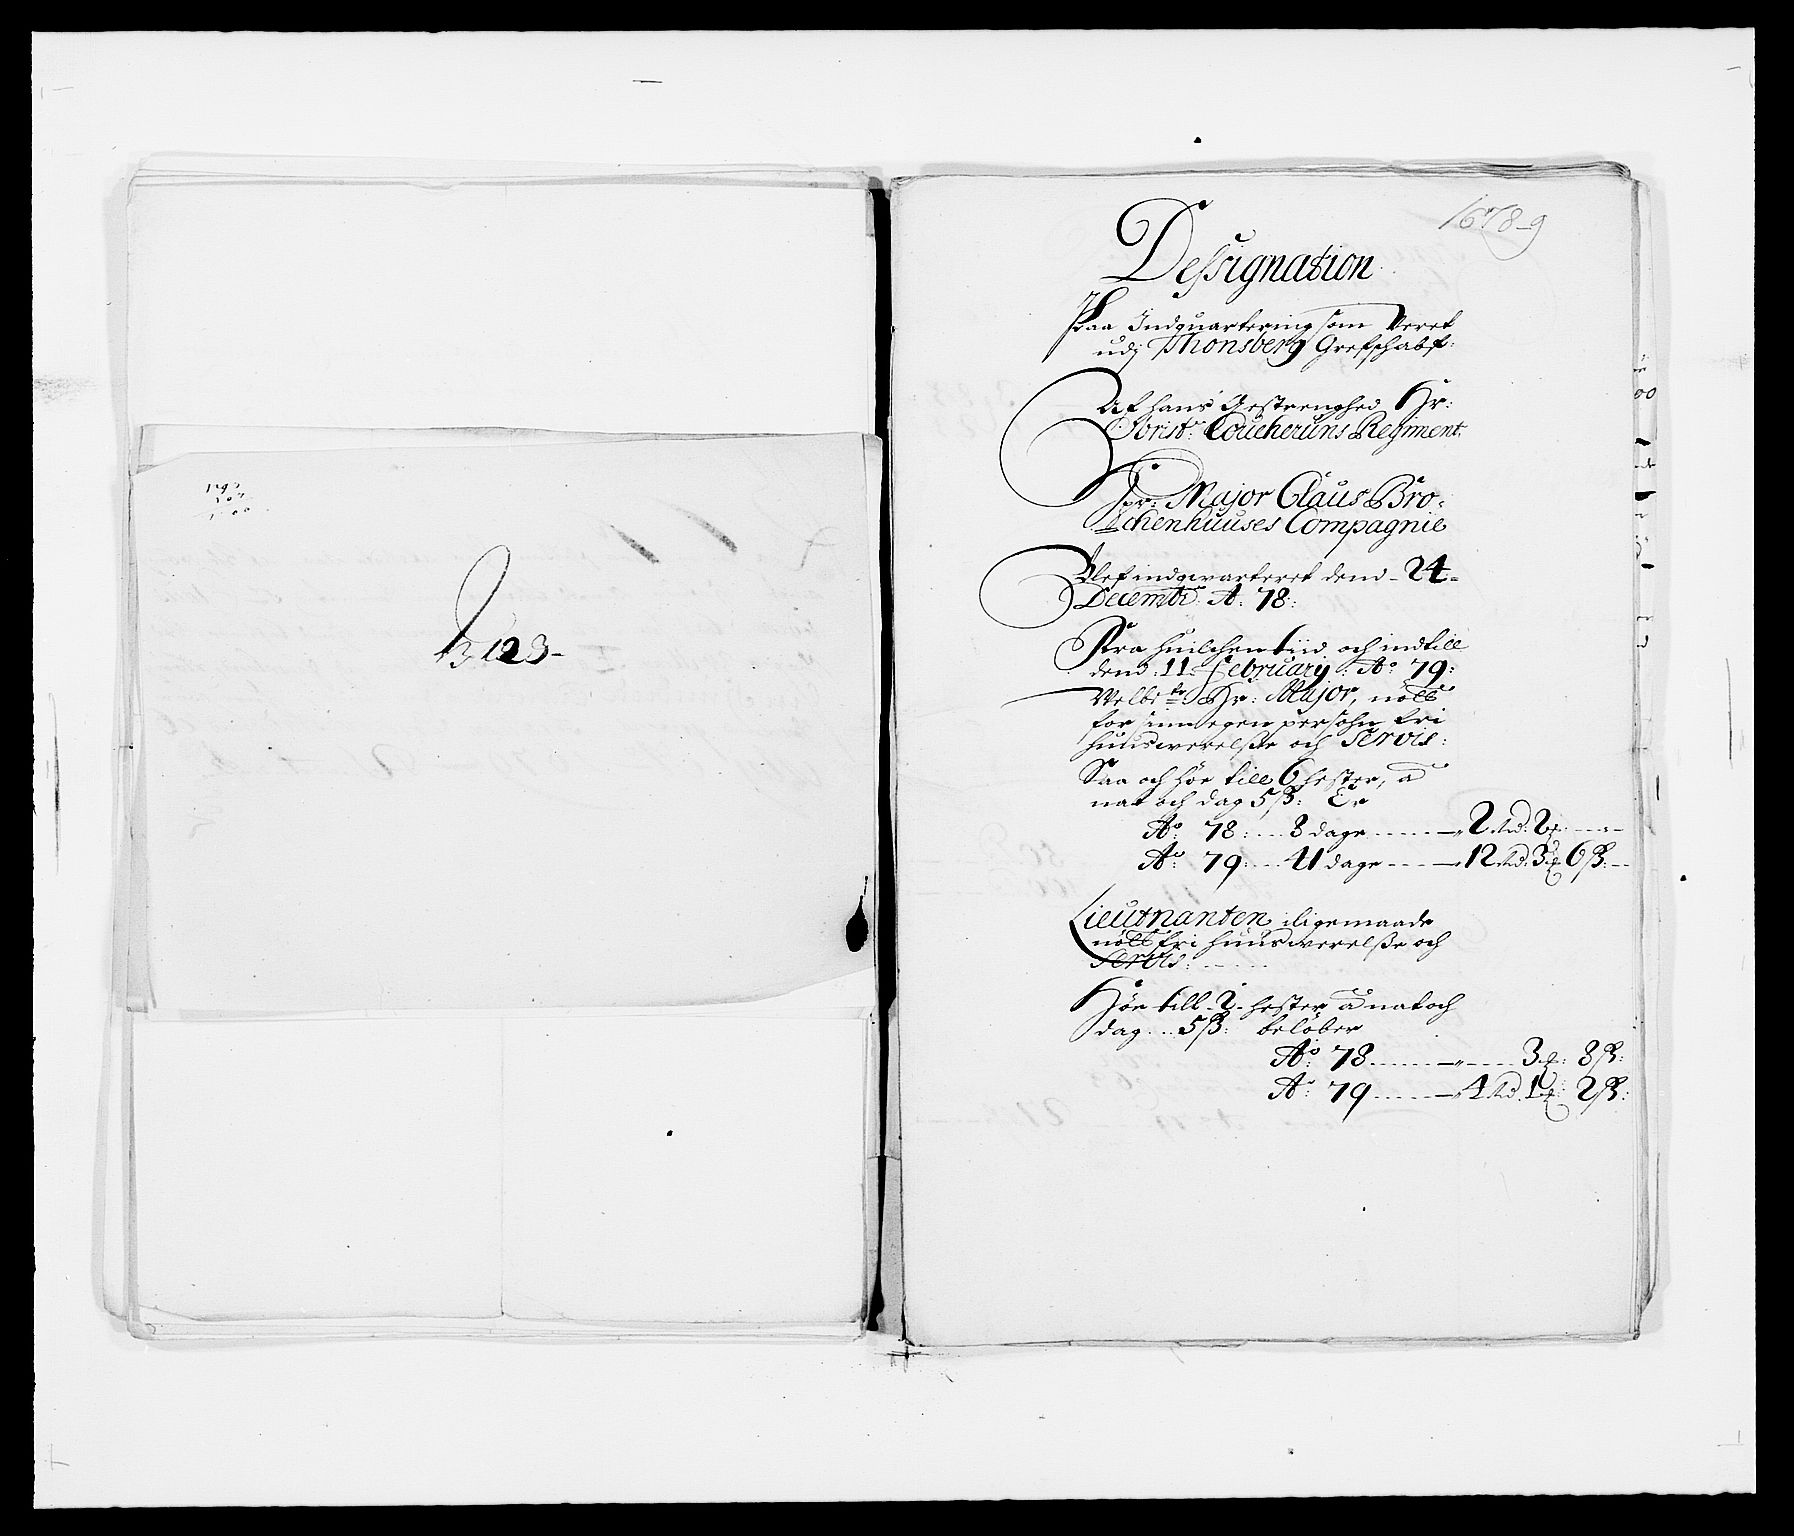 1678-9
Dessignation
Paa Indquartering som Veret
udj Thonsberg Grefschabf:
Af hans Gestrenghed Hr:
Obrist: Coucherons Regiment.
Hr: Major Claus Bro-
chenhuuses Compagnie
Blef indqvarteret dend - 24 -
Decembr: A: 78:
Fra huilchen tiid och indtill
dend 11 February: Ao 79:
Velbte Hr: Major, nött
for sinn egen persohn fri
huusverelsse och Servis:
Saa och höe till 6 hester, a
nat och dag 5 ß: Er
Ao: 78: ... 8 dage ... 2 Rd: 2
Ao: 79: ... 41 dage ... 12 Rd: 3 6 ß:
Lieutnanten iligemaade
nött fri huusverelsse och
Servis:
Höe till 2 hester a nat och
dag ... 5 ß: belöber
Ao: 78 ... 3 8 ß:
A: 79 ... 4 Rd. 1 2 ß: